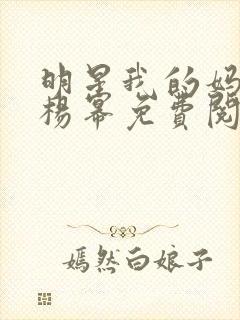 明星我的妈
杨幂免费阅
嫣然白娘子